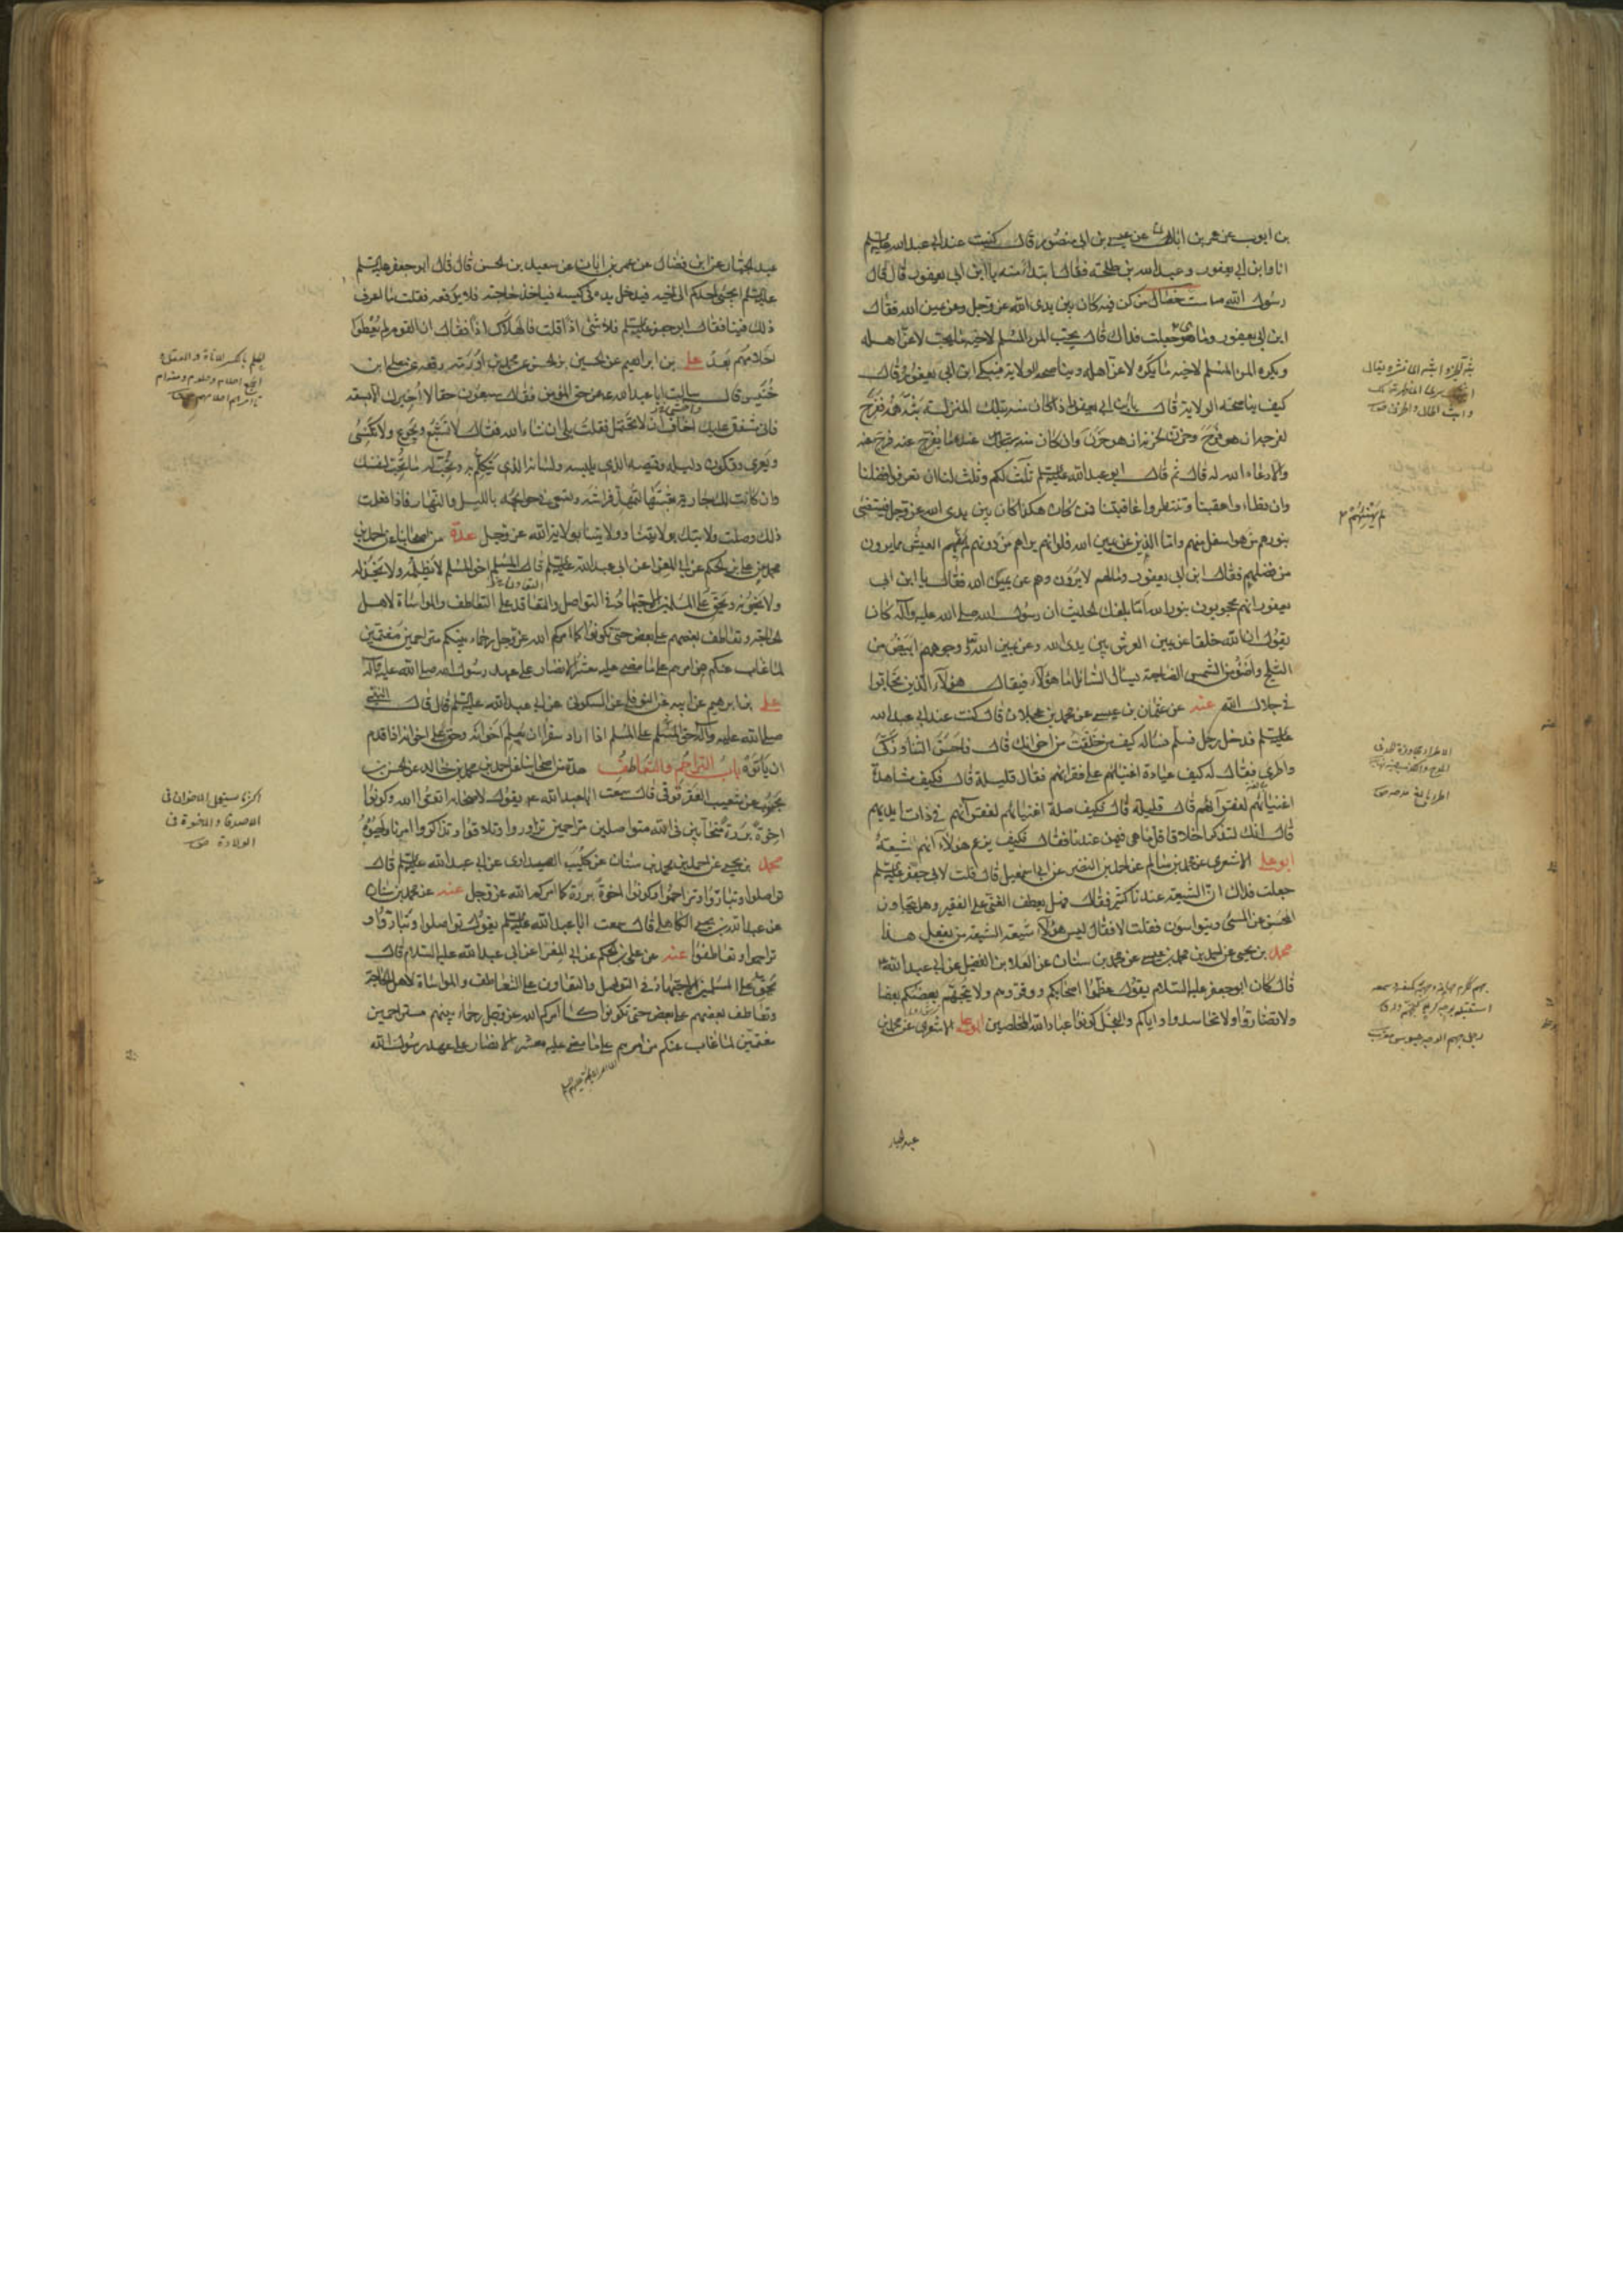 بن ايوب عن عمر بن ابان عن عيسى بن ابى منصور قال كنت عند ابى عبد الله عليه السلم
انا وابن ابى يعفور وعبد الله بن طلحة فقال ابتداء منه يا ابن ابى يعفور قال قال
رسول الله ص ست خصال من كن فيه كان بين يدى الله عز وجل وعن يمين الله فقال
ابن ابى يعفور وما هى جعلت فداك قال يحب المرء المسلم لاخيه ما يحب لاعز اهله
ويكره المرء المسلم لاخيه ما يكره لاعز اهله ويناصحه الولاية فبكى ابن ابى يعفور وقال
كيف يناصحه الولاية قال يا ابن ابى يعفور اذا كان منه بتلك المنزلة بثه همه ففرح
لفرحه ان هو فرح وحزن لحزنه ان هو حزن وان كان عنده ما يفرج عنه فرج عنه
والا دعا الله له قال ثم قال ابو عبد الله عليه السلم ثلث لكم وثلث لنا ان تعرفوا فضلنا
وان تطاوا عقبنا وتنتظروا عاقبتنا فمن كان هكذا كان بين يدى الله عز وجل فيستضئ
بنورهم من هو اسفل منهم واما الذين عن يمين الله فلو انهم يراهم من دونهم لم يهنئهم العيش مما يرون
من فضلهم فقال ابن ابى يعفور ومالهم لا يرون وهم عن يمين الله فقال يا ابن ابى
يعفور انهم محجوبون بنور الله اما بلغك الحديث ان رسول الله صلى الله عليه وآله كان
يقول ان لله خلقا عن يمين العرش بين يدى الله وعن يمين الله وجوههم ابيض من
الثلج واضوء من الشمس الضاحية يسال السائل ما هؤلاء فيقال هؤلاء الذين تحابوا
فى جلال الله عنه عن عثمان بن عيسى عن محمد بن عجلان قال كنت عند ابى عبد الله
عليه السلم فدخل رجل فسلم فساله كيف من خلفت من اخوانك قال فاحسن الثناء وزكى
واطرى فقال له كيف عيادة اغنيائهم على فقرائهم فقال قليلة قال فكيف مشاهدة
اغنيائهم لفقرائهم قال قليلة قال فكيف صلة اغنيائهم لفقرائهم فى ذات ايديهم
قال انك لتذكر اخلاقا قل ما هى فيمن عندنا فقال فكيف يزعم هؤلاء انهم الشيعة
ابو على الاشعرى عن محمد بن سالم عن احمد بن النضر عن ابى اسمعيل قال قلت لابى جعفر عليه السلم
جعلت فداك ان الشيعة عندنا كثير فقال فهل يعطف الغنى على الفقير وهل يتجاوز
المحسن عن المسئ ويتواسون فقلت لا فقال ليس هؤلاء شيعة الشيعة من يفعل هذا
محمد بن يحيى عن احمد بن محمد بن عيسى عن محمد بن سنان عن العلاء بن الفضيل عن ابى عبد الله
قال كان ابو جعفر عليه السلام يقول عظموا اصحابكم ووقروهم ولا يتجهم بعضكم بعضا
ولا تضاروا ولا تحاسدوا واياكم والبخل كونوا عباد الله المخلصين ابو على الاشعرى عن محمد بن
عبد الجبار
لم يهنئهم
عبد الجبار عن ابن فضال عن عمر بن ابان عن سعيد بن الحسن قال قال ابو جعفر عليه السلم
عليه السلم ايجئ احدكم الى اخيه فيدخل يده فى كيسه فياخذ حاجته فلا يدفعه فقلت ما اعرف
ذلك فينا فقال ابو جعفر عليه السلم فلا شئ اذا قلت فالهلاك اذا فقال ان القوم لم يعطوا
احلامهم بعد على بن ابراهيم عن الحسين بن الحسن عن محمد بن اورمة رفعه عن معلى بن
خنيس قال سالت ابا عبد الله ع عن حق المؤمن فقال سبعون حقا لا اخبرك الا بسبعة
فانى مشفق عليك اخشى الا تحتمل فقلت بلى ان شاء الله فقال لا تشبع ويجوع ولا تكتسى
ويعرى وتكون دليله وقميصه الذى يلبسه ولسانه الذى يتكلم به وتحب له ما تحب لنفسك
وان كانت لك جارية بعثتها لتمهد فراشه وتسعى فى حوائجه بالليل والنهار فاذا فعلت
ذلك وصلت ولايتك بولايتنا وولايتنا بولاية الله عز وجل عدة من اصحابنا عن احمد بن
محمد عن على بن الحكم عن ابى المغرا عن ابى عبد الله عليه السلم قال المسلم اخو المسلم لا يظلمه ولا يخذله
ولا يخونه ويحق على المسلمين الاجتهاد فى التواصل والتعاقد على التعاطف والمواساة لاهل
الحاجة وتعاطف بعضهم على بعض حتى تكونوا كما امركم الله عز وجل رحماء بينكم متراحمين مغتمين
لما غاب عنكم من امرهم على ما مضى عليه معشر الانصار على عهد رسول الله صلى الله عليه وآله
على بن ابرهيم عن ابيه عن النوفلى عن السكونى عن ابى عبد الله عليه السلم قال قال النبى
صلى الله عليه وآله حق المسلم على المسلم اذا اراد سفرا ان يعلم اخوانه وحق على اخوانه اذا قدم
ان ياتوه باب التراحم والتعاطف عدة من اصحابنا عن احمد بن محمد بن خالد عن الحسن بن
محبوب عن شعيب العقرقوفى قال سمعت ابا عبد الله ع يقول لاصحابه اتقوا الله وكونوا
اخوة بررة متحابين فى الله متواصلين متراحمين تزاوروا وتلاقوا وتذاكروا امرنا واحيوه
محمد بن يحيى عن احمد بن محمد عن محمد بن سنان عن كليب الصيداوى عن ابى عبد الله عليه السلم قال
تواصلوا وتباروا وتراحموا وكونوا اخوة بررة كما امركم الله عز وجل عنه عن محمد بن سنان
عن عبد الله بن يحيى الكاهلى قال سمعت ابا عبد الله عليه السلم يقول تواصلوا وتباروا و
تراحموا وتعاطفوا عنه عن على بن الحكم عن ابى المغرا عن ابى عبد الله عليه السلام قال
يحق على المسلمين الاجتهاد فى التواصل والتعاون على التعاطف والمواساة لاهل الحاجة
وتعاطف بعضهم على بعض حتى تكونوا كما امركم الله عز وجل رحماء بينهم متراحمين
مغتمين لما غاب عنكم من امرهم على ما مضى عليه معشر الانصار على عهد رسول الله